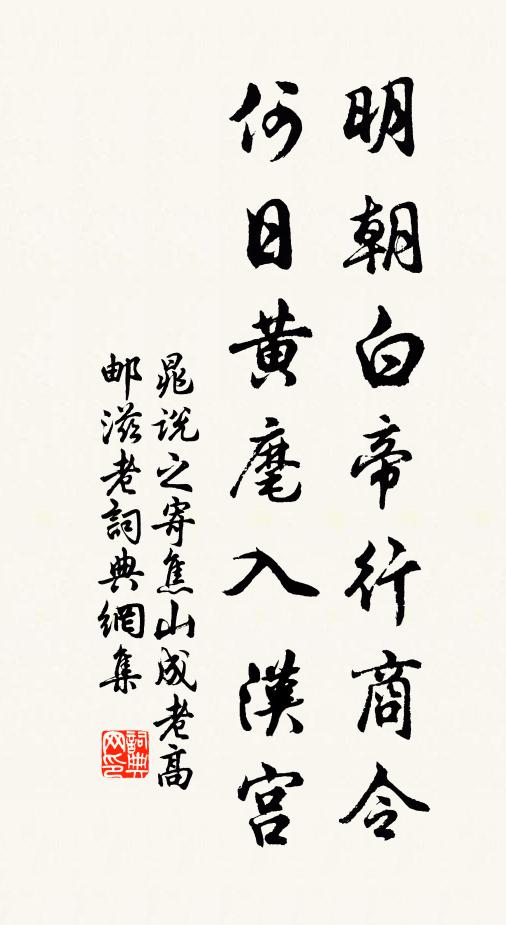 明朝白帝行商令
何日黄麾入漢宫
晁説之寄焦山成老高
邮滋老詞典網集
詞典网印